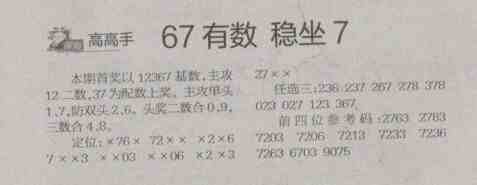 高高手 67有数 稳坐7
本期首奖以12367基数,主攻
12二数,37为配数上奖。主攻单头
1.7,防双头2.6。头奖二数合0.9,
三数合4.8。
定位:×76× 72×× ×2×6
7××3 ××03 ××06 ×2×3
27××
任选三:236 237 267 278 378
023 027 123 367。
前四位参考码:2763 2783
7203 7206 7213 7233 7236
7263 6703 9075